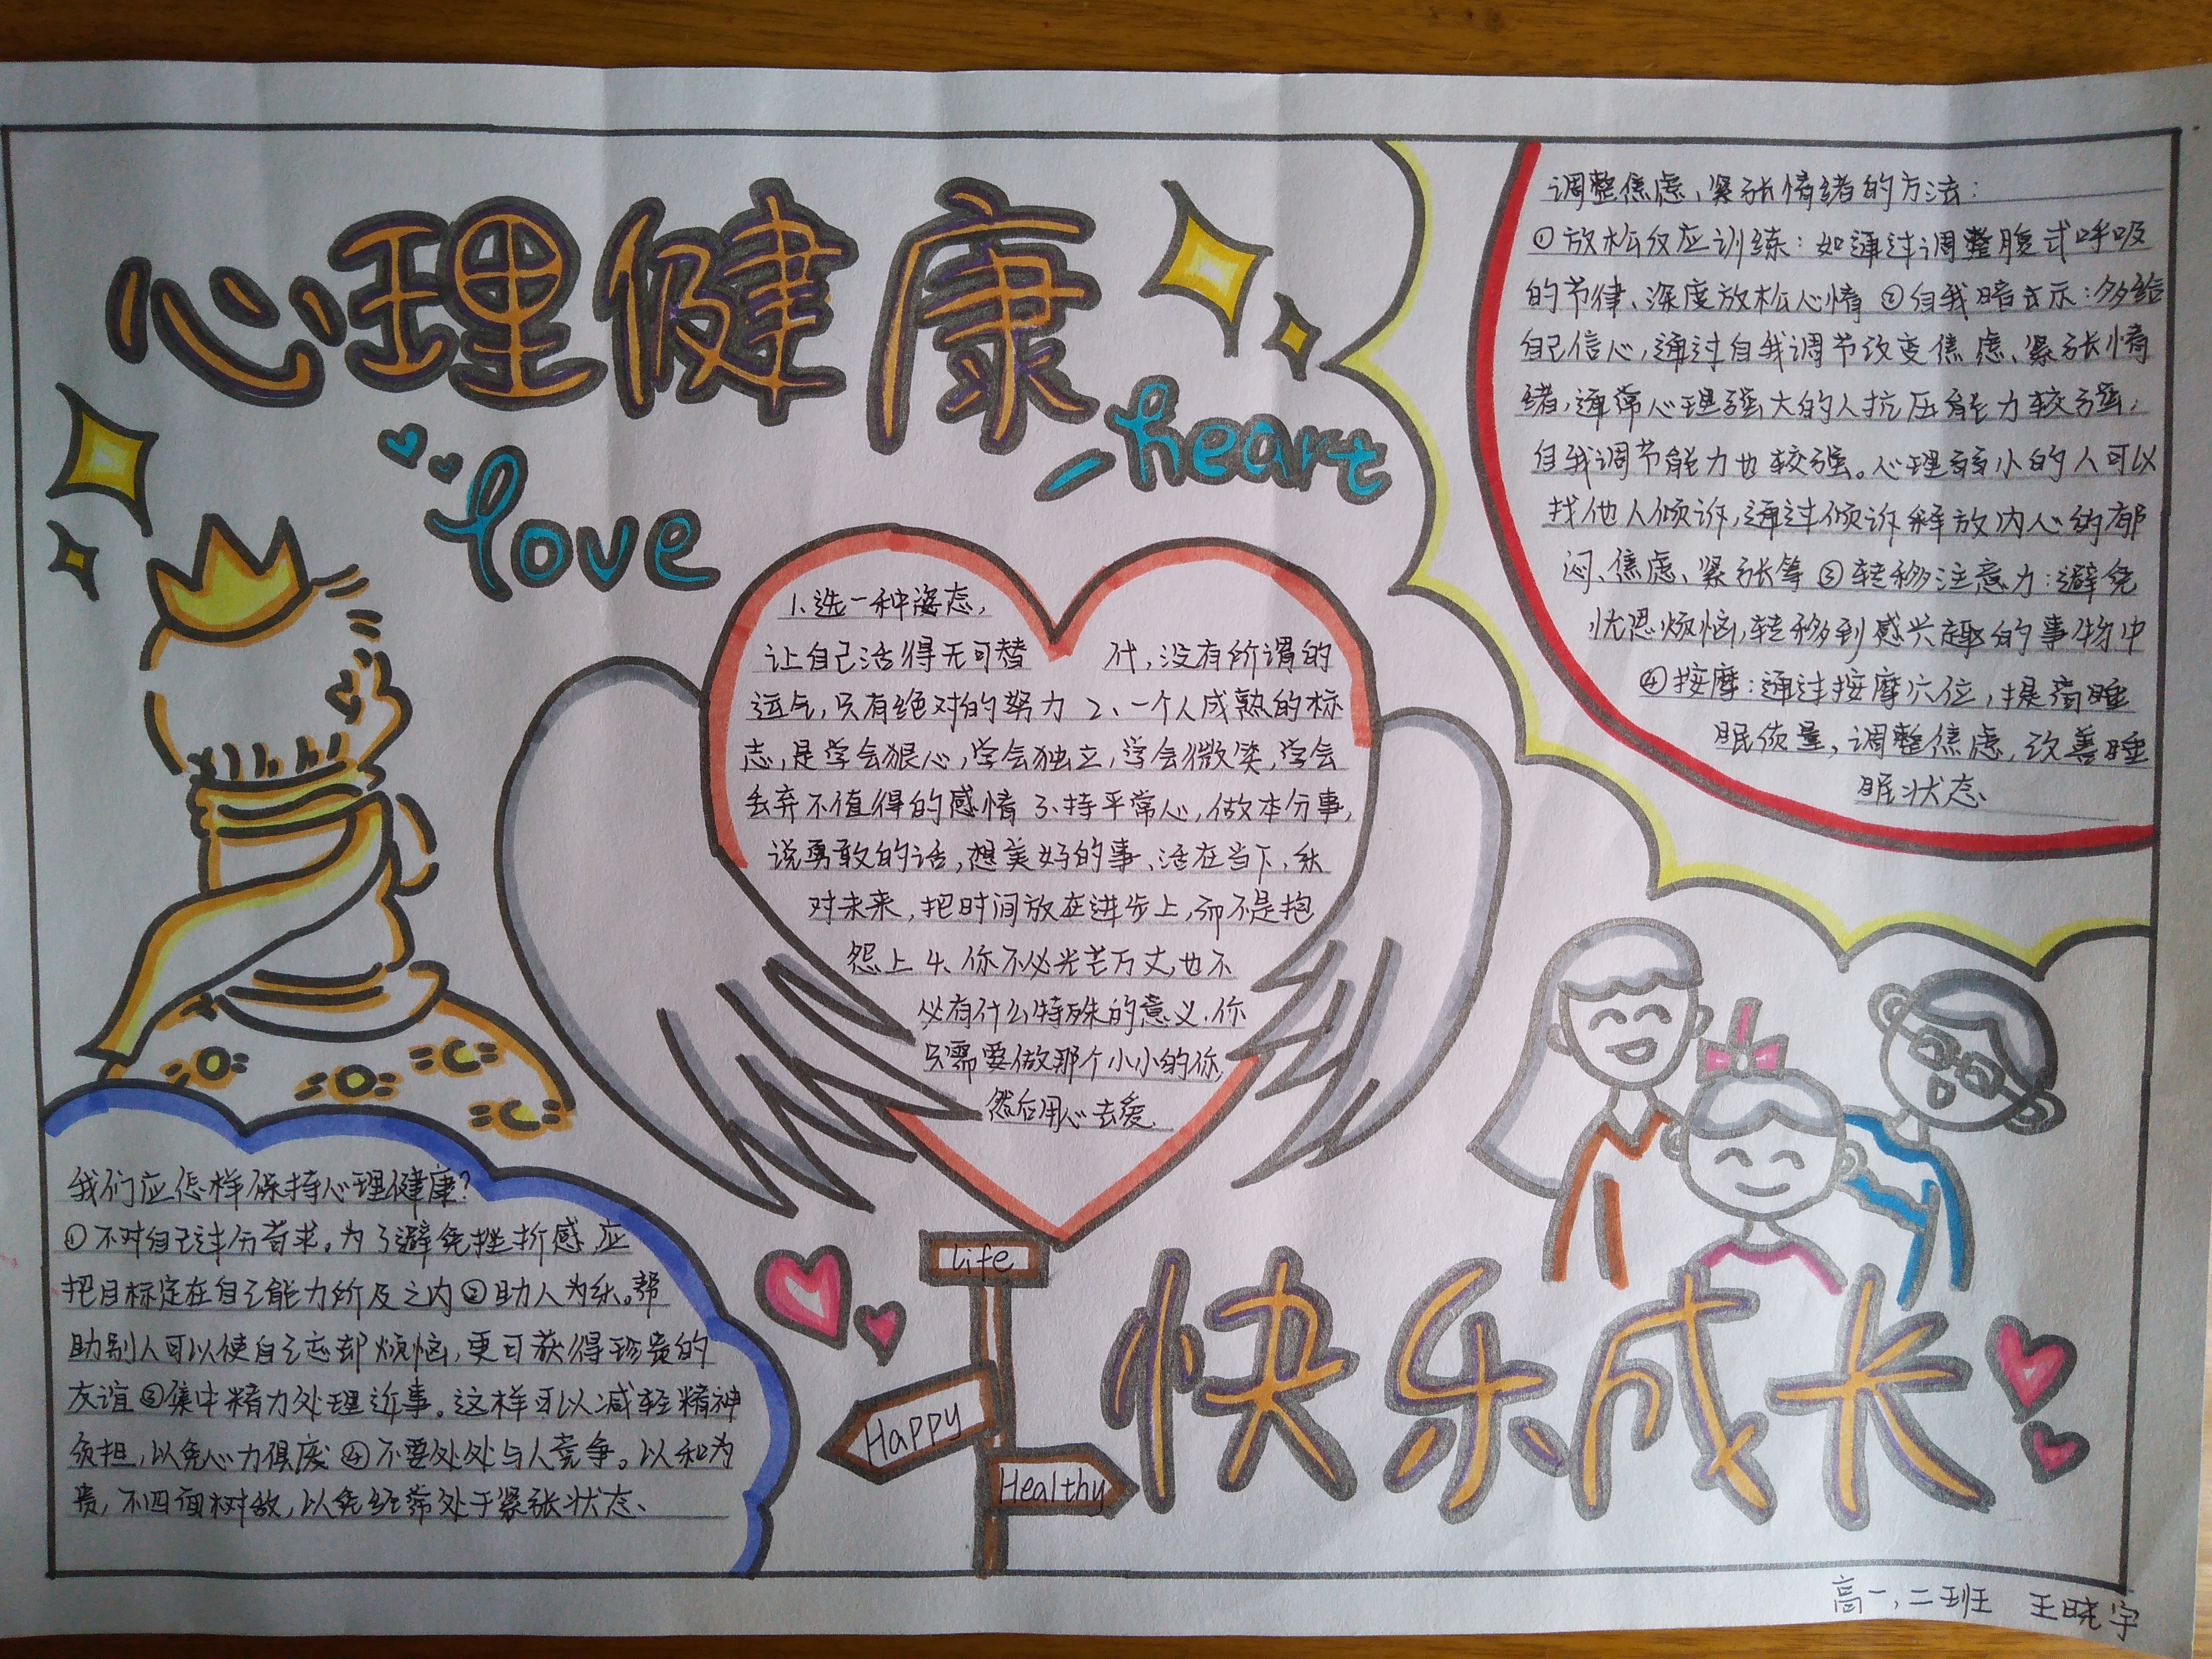 心理健康
love
heart
调整焦虑、紧张情绪的方法：
①放松反应训练：如通过调整腹式呼吸
的节律、深度放松心情②自我暗示：多给
自己信心，通过自我调节改变焦虑、紧张情
绪，通常心理强大的人抗压能力较强，
自我调节能力也较强。心理弱小的人可以
找他人倾诉，通过倾诉释放内心的郁
闷、焦虑、紧张等③转移注意力：避免
忧思烦恼，转移到感兴趣的事物中
④按摩：通过按摩穴位，提高睡
眠质量，调整焦虑，改善睡
眠状态、
1、选一种姿态，
让自己活得无可替代，没有所谓的
运气，只有绝对的努力 2、一个人成熟的标
志，是学会狠心，学会独立，学会微笑，学会
丢弃不值得的感情 3、持平常心，做本分事，
说勇敢的话，想美好的事、活在当下，
对未来，把时间放在进步上，而不是抱
怨上 4、你不必光芒万丈，也不
必有什么特殊的意义.你
只需要做那个小小的你，
然后用心去爱.
我们应怎样保持心理健康？
①不对自己过分苛求。为了避免挫折感，应
把目标定在自己能力所及之内②助人为乐。帮
助别人可以使自己忘却烦恼，更可获得珍贵的
友谊③集中精力处理近事。这样可以减轻精神
负担，以免心力俱废④不要处处与人竞争。以和为
贵，不四面树敌，以免经常处于紧张状态、
Life
Happy
Healthy
快乐成长
高一，二班 王晓宇